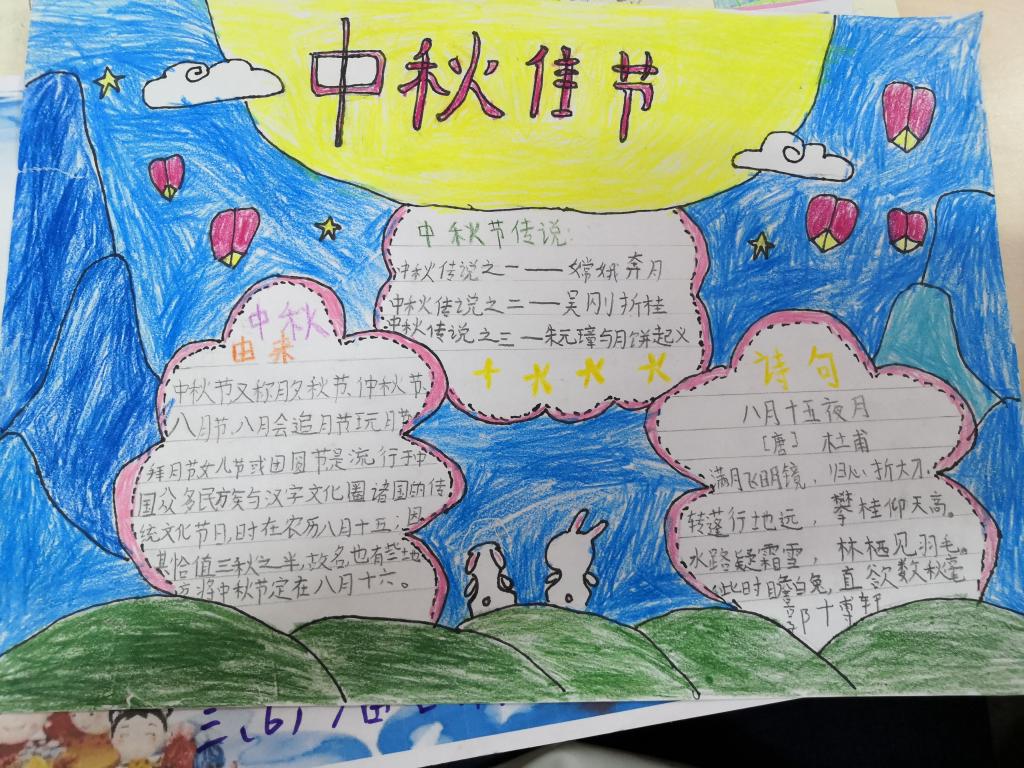 中秋佳节
中秋节传说:
中秋传说之一——嫦娥奔月
中秋传说之二——吴刚折桂
中秋传说之三—朱元璋与月饼起义
中秋
由来
中秋节又称月夕、秋节、仲秋节、
八月节、八月会追月节玩月节
拜月节女儿节或团圆节是流行于中
国众多民族与汉字文化圈诸国的传
统文化节日,时在农历八月十五;因
其恰值三秋之半,故名也有些地
方将中秋节定在八月十六。
诗句
八月十五夜月
[唐] 杜甫
满月飞明镜, 归心折大刀。
转蓬行地远, 攀桂仰天高。
水路疑霜雪, 林栖见羽毛。
此时瞻白兔, 直欲数秋毫
郭博轩
三、6